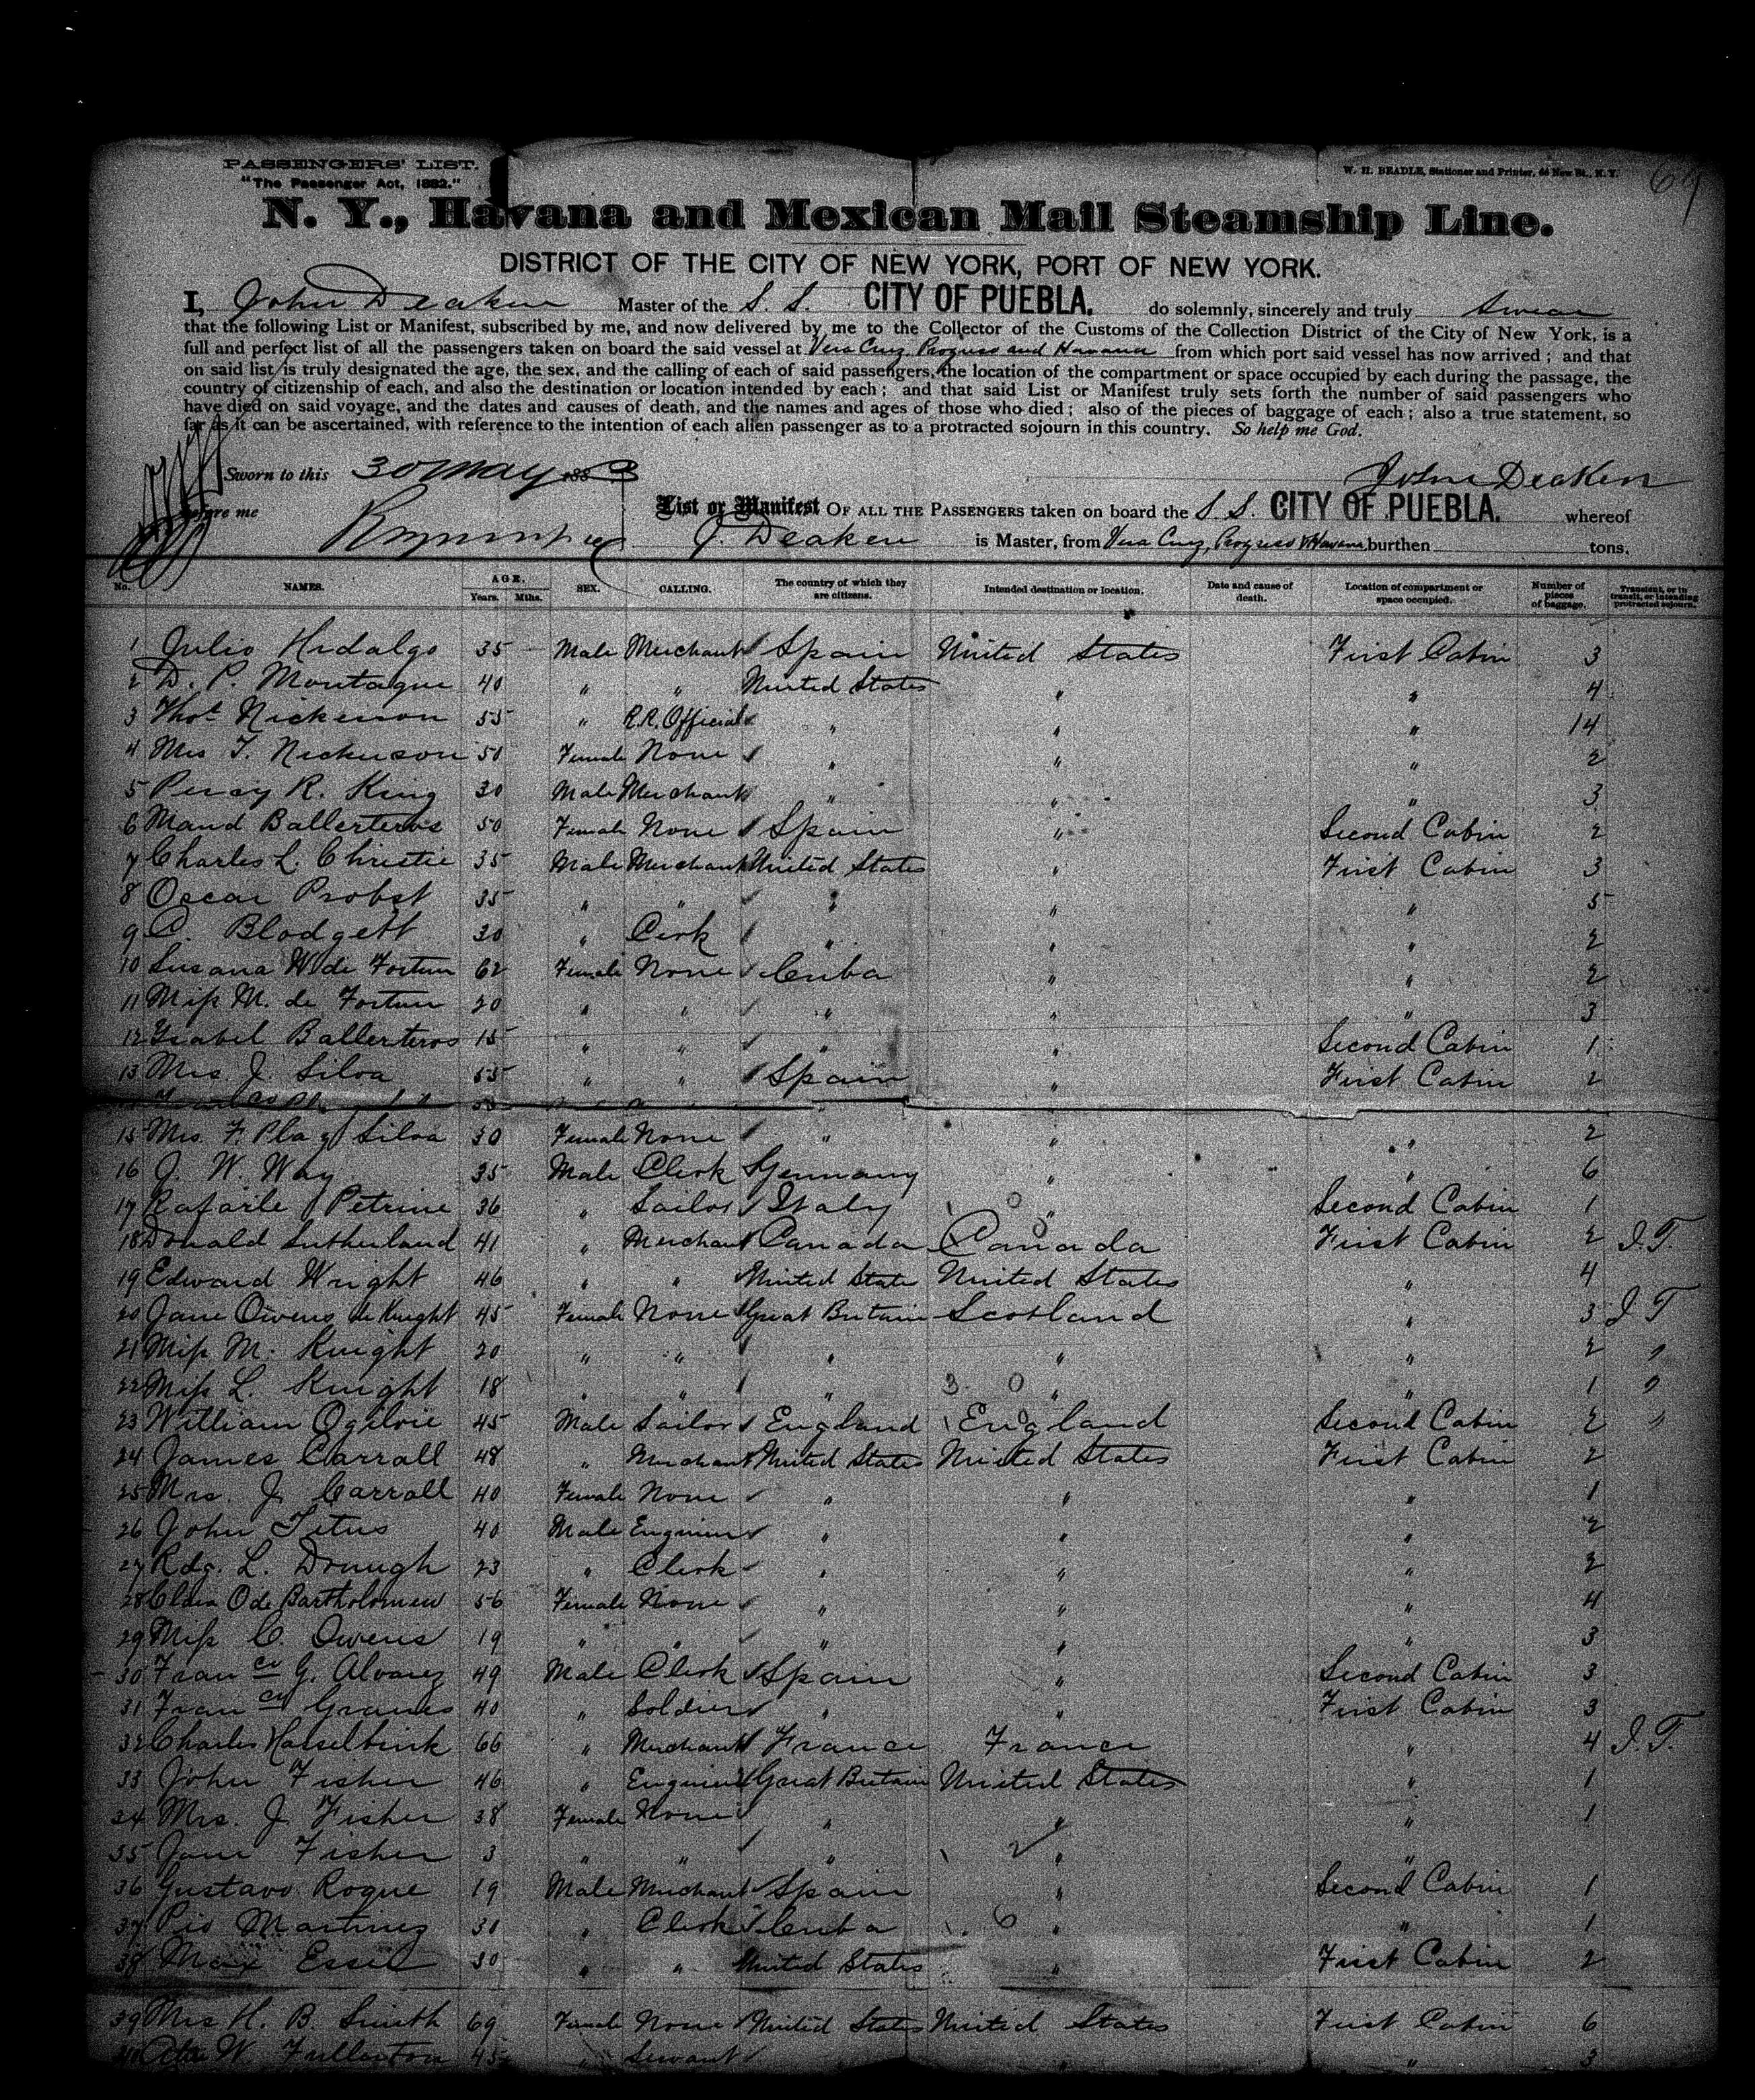 PASSENGERS' LIST.
"The Passenger Act, 1882."
W. H. BEADLE, Stationer and Printer, 46 New St., N. Y.
69
N. Y., Havana and Mexican Mail Steamship Line.
DISTRICT OF THE CITY OF NEW YORK, PORT OF NEW YORK.
I, John Deaken Master of the S. S. CITY OF PUEBLA, do solemnly, sincerely and truly Swear
that the following List or Manifest, subscribed by me, and now delivered by me to the Collector of the Customs of the Collection District of the City of New York, is a
full and perfect list of all the passengers taken on board the said vessel at Vera Cruz, Progreso and Havana from which port said vessel has now arrived; and that
on said list is truly designated the age, the sex, and the calling of each of said passengers, the location of the compartment or space occupied by each during the passage, the
country of citizenship of each, and also the destination or location intended by each; and that said List or Manifest truly sets forth the number of said passengers who
have died on said voyage, and the dates and causes of death, and the names and ages of those who died; also of the pieces of baggage of each; also a true statement, so
far as it can be ascertained, with reference to the intention of each alien passenger as to a protracted sojourn in this country. So help me God.
Sworn to this 30 May 1883
John Deaken
before me
List or Manifest OF ALL THE PASSENGERS taken on board the S. S. CITY OF PUEBLA. whereof
J. Deaken is Master, from Vera Cruz, Progreso & Havana burthen tons.
No. NAMES. AGE. Years. Mths. SEX. CALLING. The country of which they are citizens. Intended destination or location. Date and cause of death. Location of compartment or space occupied. Number of pieces of baggage. Transient, or in transit, or intending protracted sojourn.
1 Julio Hidalgo 35 Male Merchant Spain United States First Cabin 3
2 D. P. Montague 40 " " United States " " 4
3 Thos. Nickerson 55 " R.R. Official " " " 14
4 Mrs T. Nickerson 50 Female None " " " 2
5 Percy R. King 30 Male Merchant " " " 3
6 Maud Ballerteros 50 Female None Spain " Second Cabin 2
7 Charles L. Christie 35 Male Merchant United States " First Cabin 3
8 Oscar Probst 35 " " " " " 5
9 C. Blodgett 30 " Cerk " " " 2
10 Susana W de Fortun 62 Female None Cuba " " 2
11 Miss M. de Fortun 20 " " " " " 3
12 Isabel Ballerteros 15 " " " " Second Cabin 1
13 Mrs. J. Silva 55 " " Spain " First Cabin 2
15 Mrs. F. Pla y Silva 30 Female None " " " 2
16 J. W. Way 35 Male Clerk Germany " " 6
17 Rafaele Petrine 36 " Sailor Italy " Second Cabin 1
18 Donald Sutherland 41 " Merchant Canada Canada First Cabin 2 I.T.
19 Edward Wright 46 " " United States United States " 4
20 Jane Owens de Knight 45 Female None Great Britain Scotland " 3 I T
21 Miss M. Knight 20 " " " " " 2 "
22 Miss L. Knight 18 " " " " " 1 "
23 William Ogilvie 45 Male Sailor England England Second Cabin 2 "
24 James Carroll 48 " Merchant United States United States First Cabin 2
25 Mrs. J. Carroll 40 Female None " " " 1
26 John Titus 40 Male Engineer " " " 2
27 L. 23 " Clerk " " " 2
28 O de Bartholomew 56 Female None " " " 4
29 Miss C. Owens 19 " " " " " 3
30 Franco G. Alvarez 49 Male Clerk Spain " Second Cabin 3
31 40 " Soldier " " First Cabin 3
32 Charles Hasselbrink 66 " Merchant France France " 4 I.T.
33 John Fisher 46 " Engineer Great Britain United States " 1
34 Mrs. J. Fisher 38 Female None " " " 1
35 Jane Fisher 3 " " " " "
36 Gustavo Roque 19 Male Merchant Spain " Second Cabin 1
37 Pio Martinez 30 " Clerk Cuba " " 1
38 Max Essel 30 " " United States " First Cabin 2
39 Mrs H. B. Smith 69 Female None United States United States First Cabin 6
40 W. Fullerton 45 " Servant " " 3